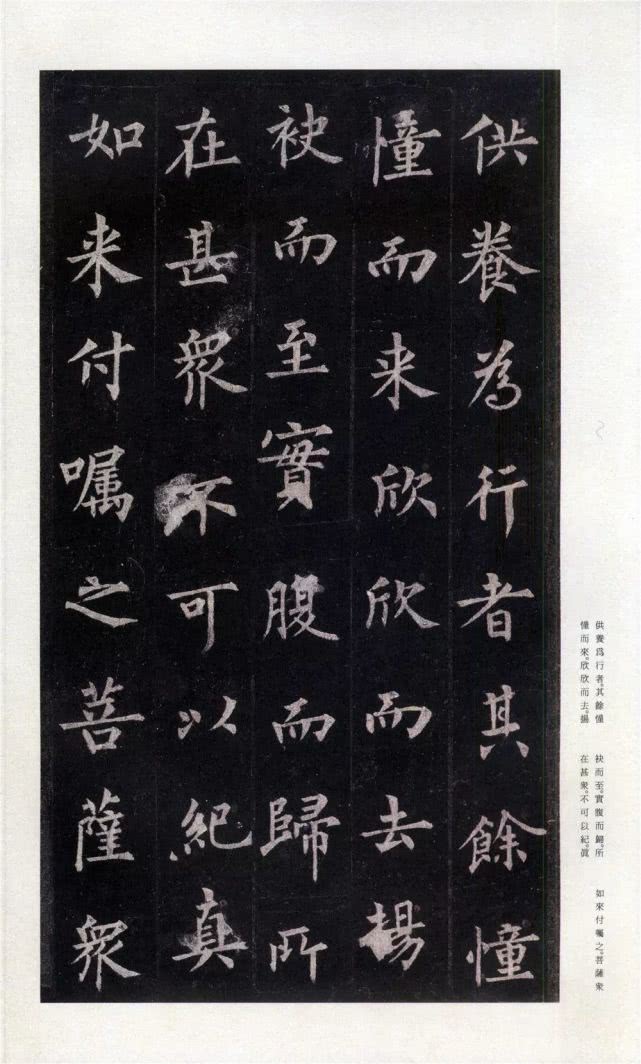 供養為行者其餘憧
憧而来欣欣而去揚
袂而至實腹而歸所
在甚眾不可以紀真
如来付嘱之菩薩眾
供養爲行者。其餘憧
憧而來。欣欣而去。揚
袂而至。實腹而歸。所
在甚衆。不可以紀。眞
如來付囑之。菩薩衆